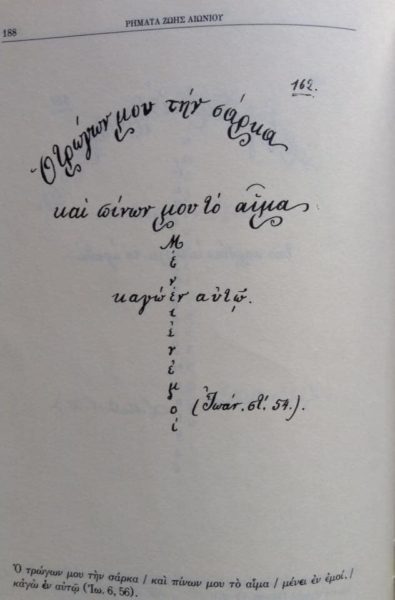 188
ΡΗΜΑΤΑ ΖΩΗΣ ΑΙΩΝΙΟΥ
162.
Ὁ τρώγων μου τὴν σάρκα
καὶ πίνων μου τὸ αἷμα
Μένει ἐν ἐμοί
κἀγὼ ἐν αὐτῷ.
(Ἰωάν. στ΄. 54.).
Ὁ τρώγων μου τὴν σάρκα / καὶ πίνων μου τὸ αἷμα / μένει ἐν ἐμοί. /
κἀγὼ ἐν αὐτῷ (Ἰω. 6, 56).